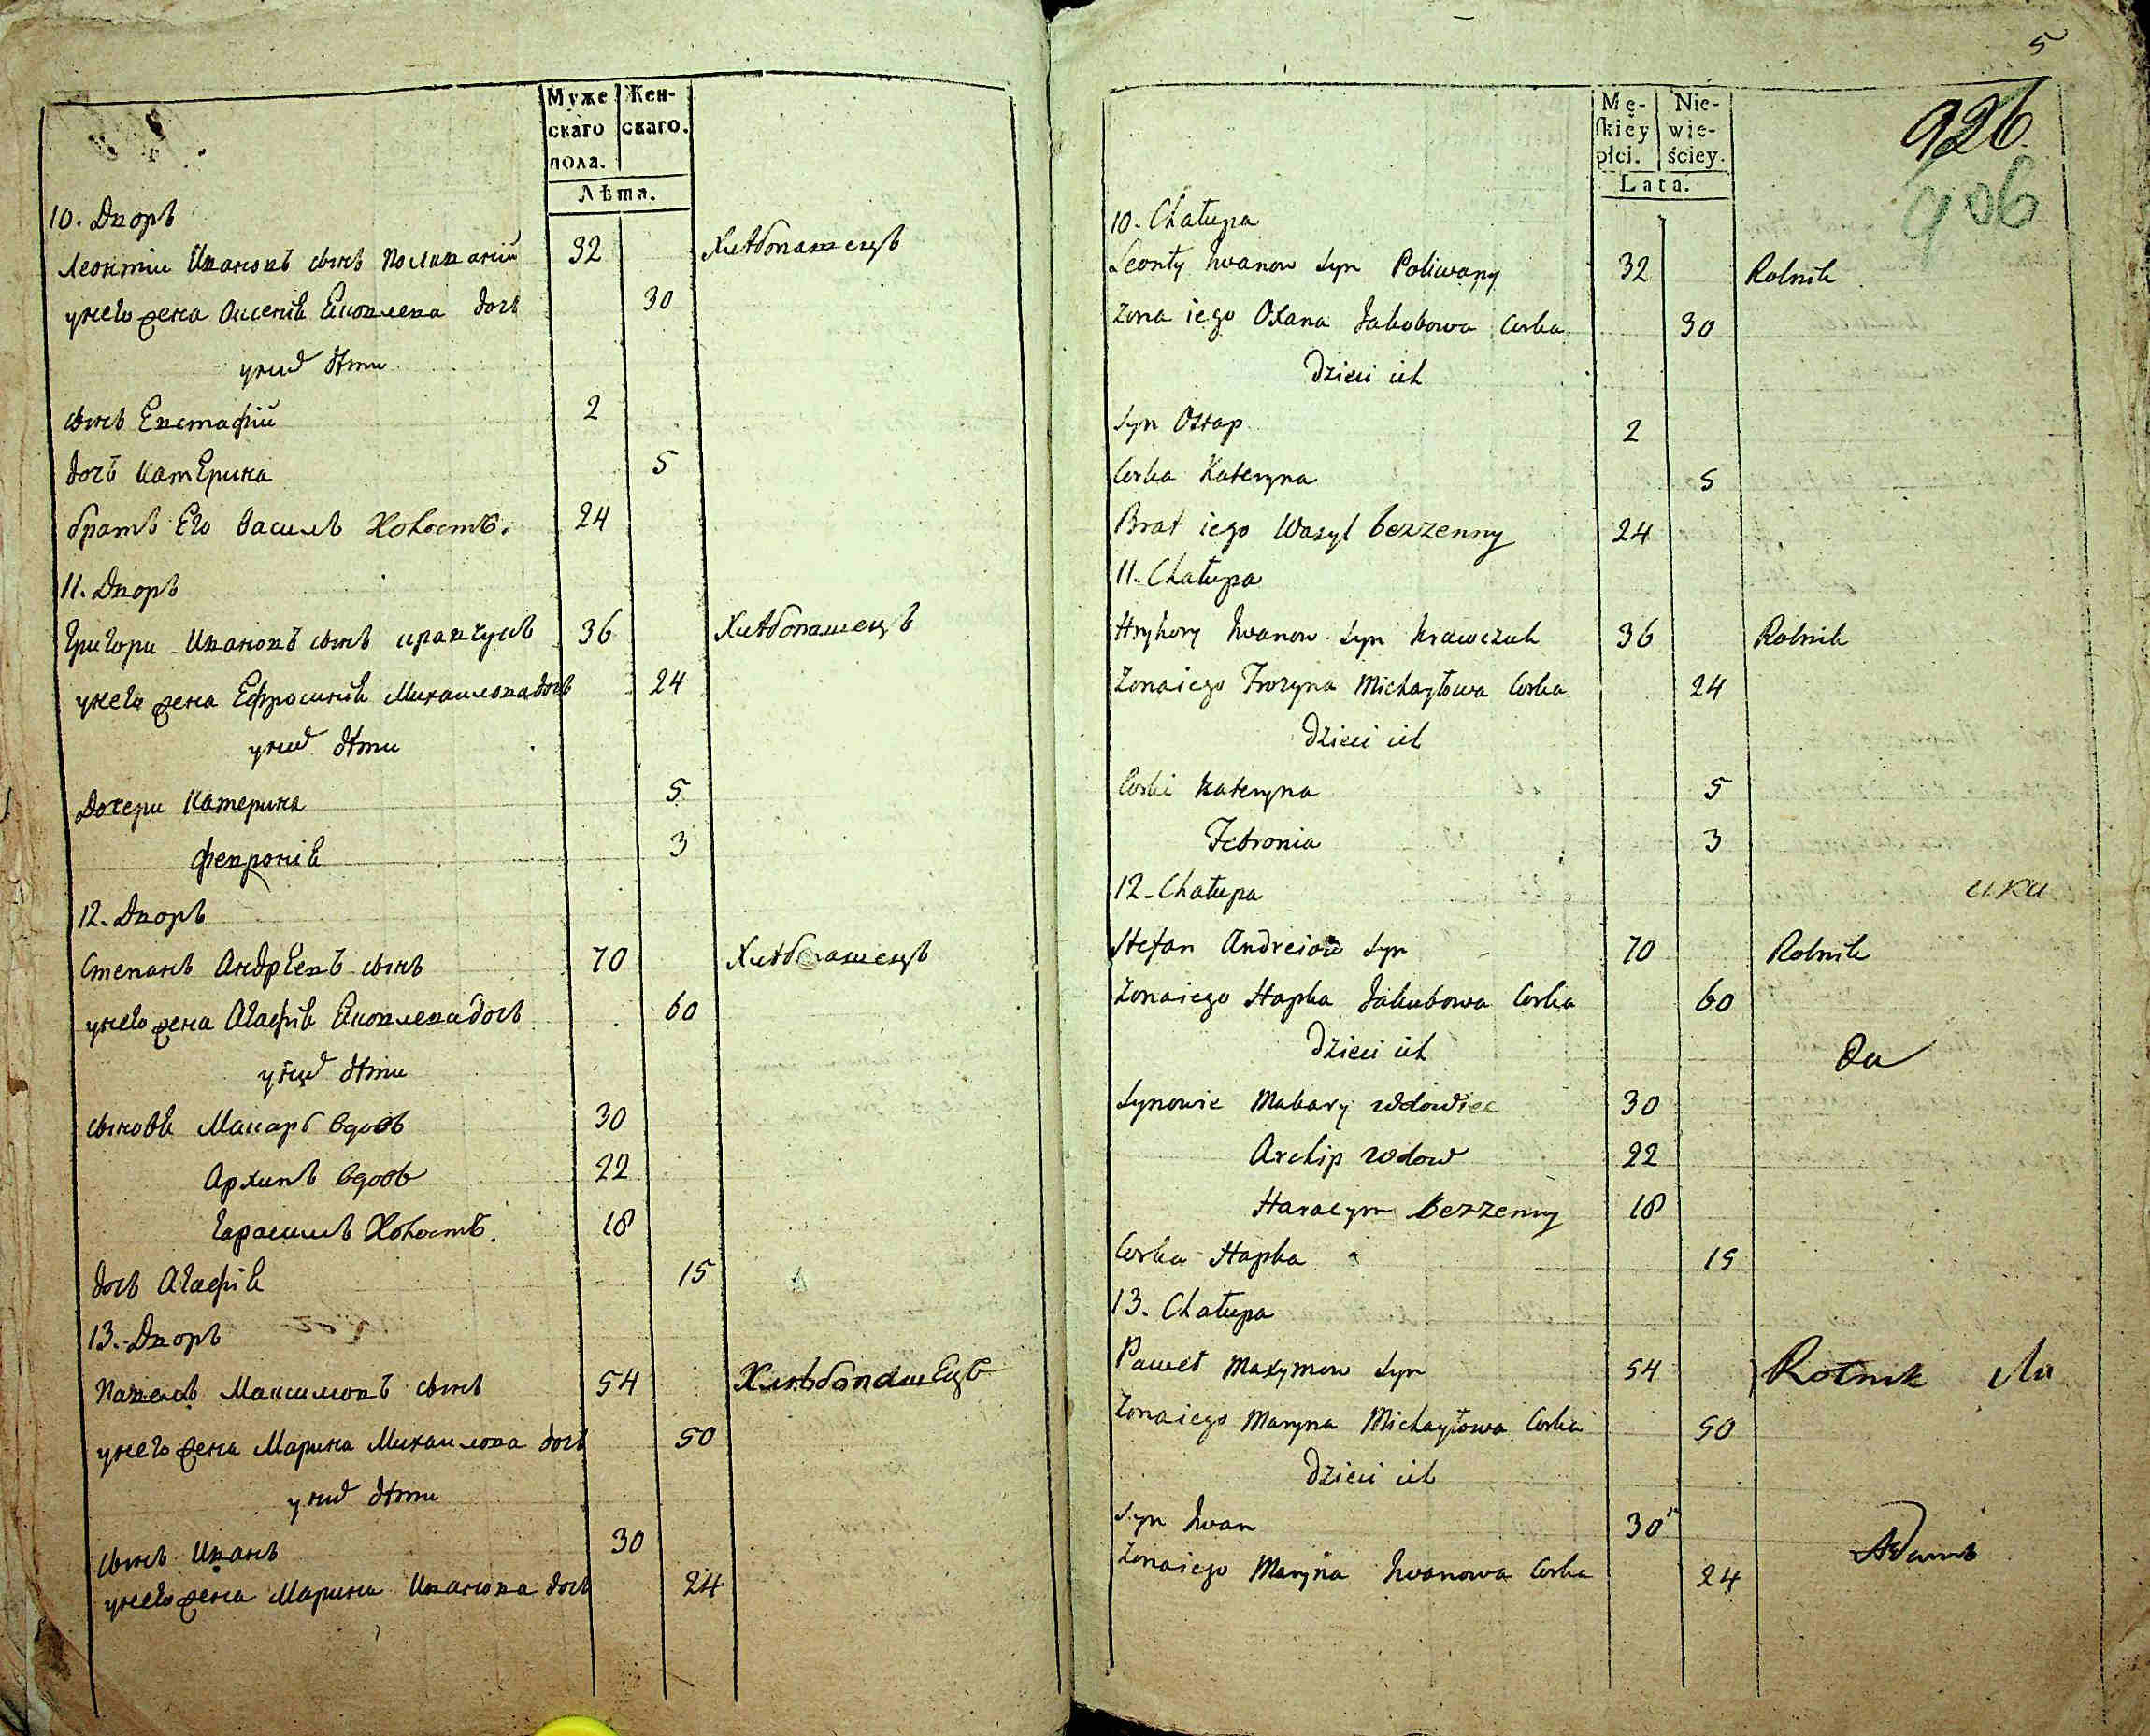 Муже
скаго
пола.
Жен-
скаго.
Лѣта.
10. Дворъ
Леонтии Ивановъ сынъ Поливаний 32 Хлѣбопашецъ
унего жена Оксенія Яковлева дочь 30
унихъ дѣти
сынъ Евстафий 2
дочь Катерина 5
братъ Его Василь Холостъ. 24
11. Дворъ
Григори Ивановъ сынъ кравчукъ 36 Хлѣбопашецъ
унего жена Ефросинія Михаилова дочь 24
унихъ дѣти
Дочери Катерина 5
Февронія 3
12. Дворъ
Степанъ Андреевъ сынъ 70 Хлѣбопашецъ
унего жена Агафія Яковлева дочь 60
унихъ дѣти
сыновя Макаръ вдовъ 30
Архипъ вдовъ 22
Гарасимъ Холостъ. 18
дочь Агафія 15
13. Дворъ
Павелъ Максимовъ сынъ 54 Хлѣбопашецъ
унего жена Марина Михаилова дочь 50
унихъ дѣти
сынъ Иванъ 30
унего жена Марина Иванова дочь 24
5
926.
906
Mę-
skiéy
płci.
Nie-
wie-
ściey.
Lata.
10. Chałupa
Leonty Iwanow Syn Poliwany 32 Rolnik
Zona iego Oxana Jakobowa Corka 30
Dzieci ich
Syn Ostap 2
Corka Kateryna 5
Brat iego Wasyl bezzenny 24
11. Chałupa
Hryhory Iwanow Syn Krawczuk 36 Rolnik
Zona iego Frozyna Michayłowa Corka 24
Dzieci ich
Corki Kateryna 5
Febronia 3
12. Chałupa
ика
Stefan Andreiow Syn 70 Rolnik
Zona iego Hapka Jakubowa Corka 60
Dzieci ich
Synowie Makary wdowiec 30
Archip wdow 22
Haracym bezzenny 18
Corka Hapka 15
13. Chałupa
Paweł Maxymow Syn 54 Rolnik
Zona iego Maryna Michayłowa Corka 50
Dzieci ich
Syn Iwan 30
Zona iego Maryna Iwanowa Corka 24